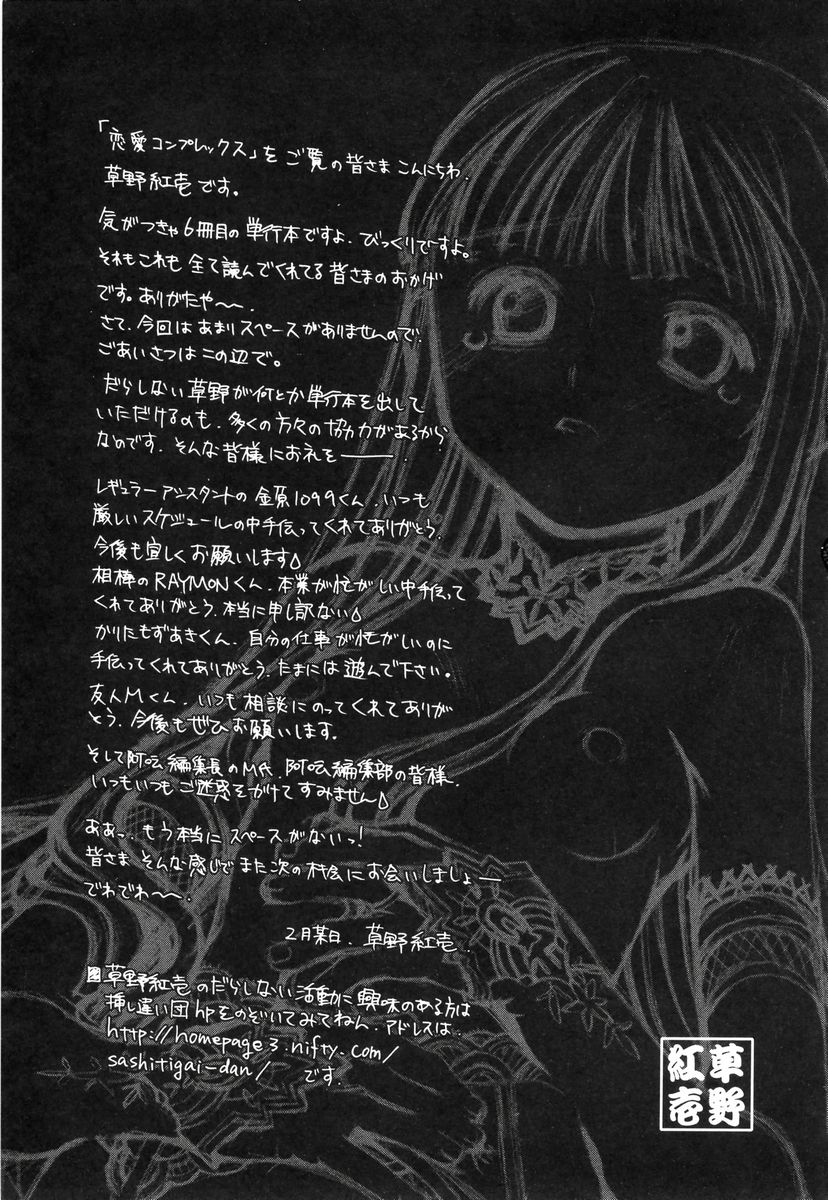 「恋愛コンプレックス」を ご覧の皆さま こんにちわ.
草野紅壱です。
気がつきゃ6冊目の単行本ですよ. びっくりですよ。
それもこれも 全て読んでくれてる 皆さまのおかげ
です。ありがたや〜.
さて、今回は あまりスペースがありませんので.
ごあいさつはこの辺で。
だらしない草野が何とか単行本を出して
いただけるのも、多くの方々の協力があるから
なのです. そんな皆様にお礼を――.
レギュラーアシスタントの 金原1099くん. いつも
厳しいスケジュールの中手伝ってくれてありがとう.
今後も宜しくお願いします
相棒のRAYMONくん. 本業が忙がしい中手伝って
くれてありがとう. 本当に申し訳ない
かりたもずあきくん. 自分の仕事が忙がしいのに
手伝ってくれてありがとう. たまには遊んで下さい。
友人Mくん. いつも相談にのってくれてありが
とう. 今後もぜひお願いします.
そして阿吽編集長のM氏. 阿吽編集部の皆様.
いつもいつもご迷惑をかけてすみません
ああっ. もう本当にスペースがないっ!
皆さま そんな感じでまた次の機会にお会いしましょー
でわでわ〜.
2月某日. 草野紅壱.
草野紅壱のだらしない活動に興味のある方は
挿し違い団hpをのぞいてみてねん. アドレスは.
http://homepage3.nifty.com/
sashitigai-dan/ です.
草野
紅壱